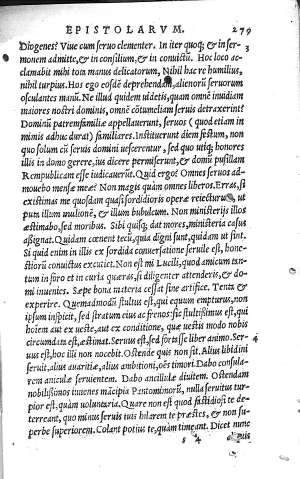 EPISTOLARVM. 279
Diogenes? Viue cum seruo clementer. In iter quoq; & in ser-
monem admitte, & in consilium, & in conuictũ. Hoc loco ac-
clamabit mihi tota manus delicatorum, Nihil hac re humilius,
nihil turpius. Hos ego eosdẽ deprehendam, alienorũ seruorum
osculantes manũ. Ne illud quidem uidetis, quam omnẽ inuidiam
maiores nostri dominis, omnẽ cõtumeliam seruis detraxerint?
Dominũ patremfamiliæ appellauerunt, seruos (quod etiam in
mimis adhuc durat) familiares. Instituerunt diem festum, non
quo solum cũ seruis domini uescerentur, sed quo utiq; honores
illis in domo gerere, ius dicere permiserunt, & domũ pusillam
Rempublicam esse iudicauerũt. Quid ergo? Omnes seruos ad-
mouebo mensæ meæ? Non magis quàm omnes liberos. Erras, si
existimas me quosdam quasi sordidioris operæ reiecturum, ut
puta illum mulionẽ, & illum bubulcum. Non ministerijs illos
æstimabo, sed moribus. Sibi quisq; dat mores, ministeria casus
aßignat. Quidam cœnent tecũ, quia digni sunt, quidam ut sint.
Si quid enim in illis ex sordida conuersatione seruile est, hone-
stiorũ conuictus excutiet. Non est mi Lucili, quod amicum tan-
tum in foro et in curia quæras, si diligenter attenderis, & do-
mi inuenies. Sæpe bona materia cessat sine artifice. Tenta &
experire. Quemadmodũ stultus est, qui equum empturus, non
ipsum inspicit, sed stratum eius ac frenos: sic stultißimus est, qui
hoĩem aut ex ueste, aut ex conditione, quæ uestis modo nobis
circumdata est, æstimat. Seruus est, sed fortasse liber animo. Ser-
uus est, hoc illi non nocebit. Ostende quis non sit. Alius libidini
seruit, alius auaritiæ, alius ambitioni, oẽs timori. Dabo consula-
rem aniculæ seruientem. Dabo ancillulæ diuitem. Ostendam
nobilißimos iuuenes mãcipia Pantomimorũ, nulla seruitus tur-
pior est, quàm uoluntaria. Quare non est quod fastidiosi te de-
terreant, quo minus seruis tuis hilarem te præstes, & non su-
perbe superiorem. Colant potius te, quàm timeant. Dicet nunc
s 4